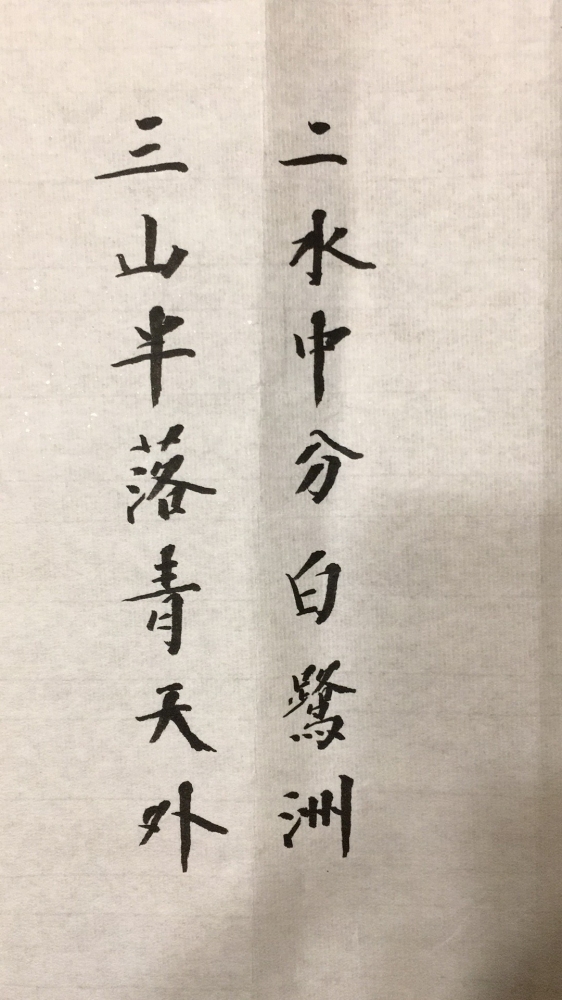 二水中分白鹭洲
三山半落青天外